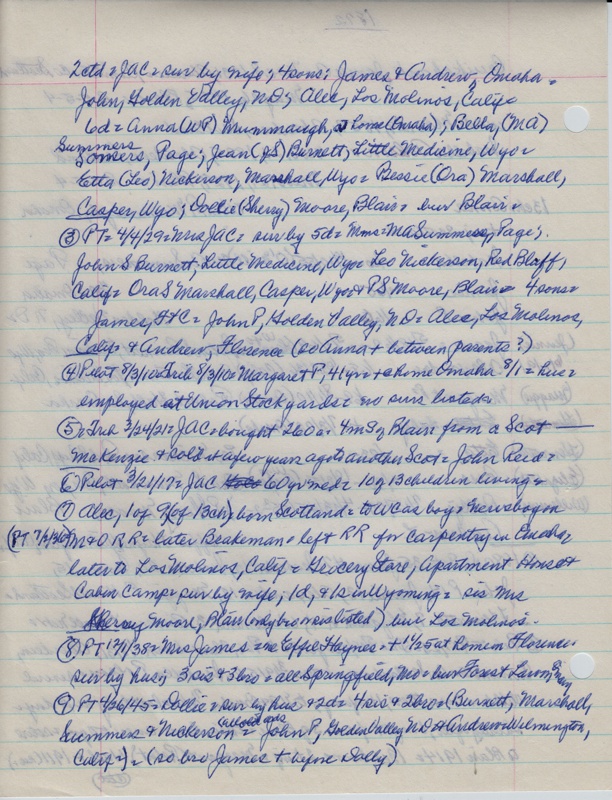 1892
2ctd = JAC = sur by wife; 4 sons: James & Andrew, Omaha =
John, Golden Valley, ND; Alec, Los Molinos, Calif =
6d = Anna (WP) Mummaugh, Lome (Omaha); Bella, (MA)
Summers
Somers, Page; Jean (JS) Burnett, Little Medicine, Wyo =
Etta (Leo) Nickerson, Marshall, Wyo = Bessie (Ora) Marshall,
Casper, Wyo; Dollie (Sherry) Moore, Blair = bur Blair =
③ PT = 4/4/29 = Mrs JAC = sur by 5d = Mrs = MA Summers, Page;
John S Burnett, Little Medicine, Wyo = Leo Nickerson, Red Bluff,
Calif = Ora S Marshall, Casper, Wyo & PS Moore, Blair = 4 sons =
James, F+C = John P, Golden Valley, ND = Alec, Los Molinos,
Calif & Andrew, Florence (so Anna + between parents?)
④ Pilot 8/3/10 = Trib 8/3/10 = Margaret P, 41yr + @ home Omaha 8/1 = hus =
employed at Union Stockyards = no surs listed =
⑤ = Trib 3/24/21 = JAC = bought 260a = 4m S of Blair from a Scot —
McKenzie & sold it a few years ago to another Scot = John Reid =
⑥ Pilot 3/21/17 = JAC 60 yr wed = 10 of 13 children living =
⑦ Alec, 1 of 9 (of 13 ch), born Scotland = to WC as boy = Newsboy on
(PT 7/1/36) M&O RR = later Brakeman = left RR for carpentry in Omaha,
later to Los Molinos, Calif = Grocery Store, Apartment House &
Cabin Camp = sur by wife, 1d, & 1s in Wyoming = sis Mrs
Moore, Blair (only bro or sis listed) bur Los Molinos =
⑧ PT 12/1/38 = Mrs James = ne Effie Haynes = + 11/25 at home in Florence =
sur by hus; 3 sis & 3 bro = all Springfield, Mo = bur Forest Lawn, Omaha
⑨ PT 4/26/45 = Dollie = sur by hus & 2d = 4 sis & 2 bro = (Burnett, Marshall,
Summers & Nickerson = John P, Golden Valley ND & Andrew = Wilmington,
Calif =) = (so bro James + before Dolly)